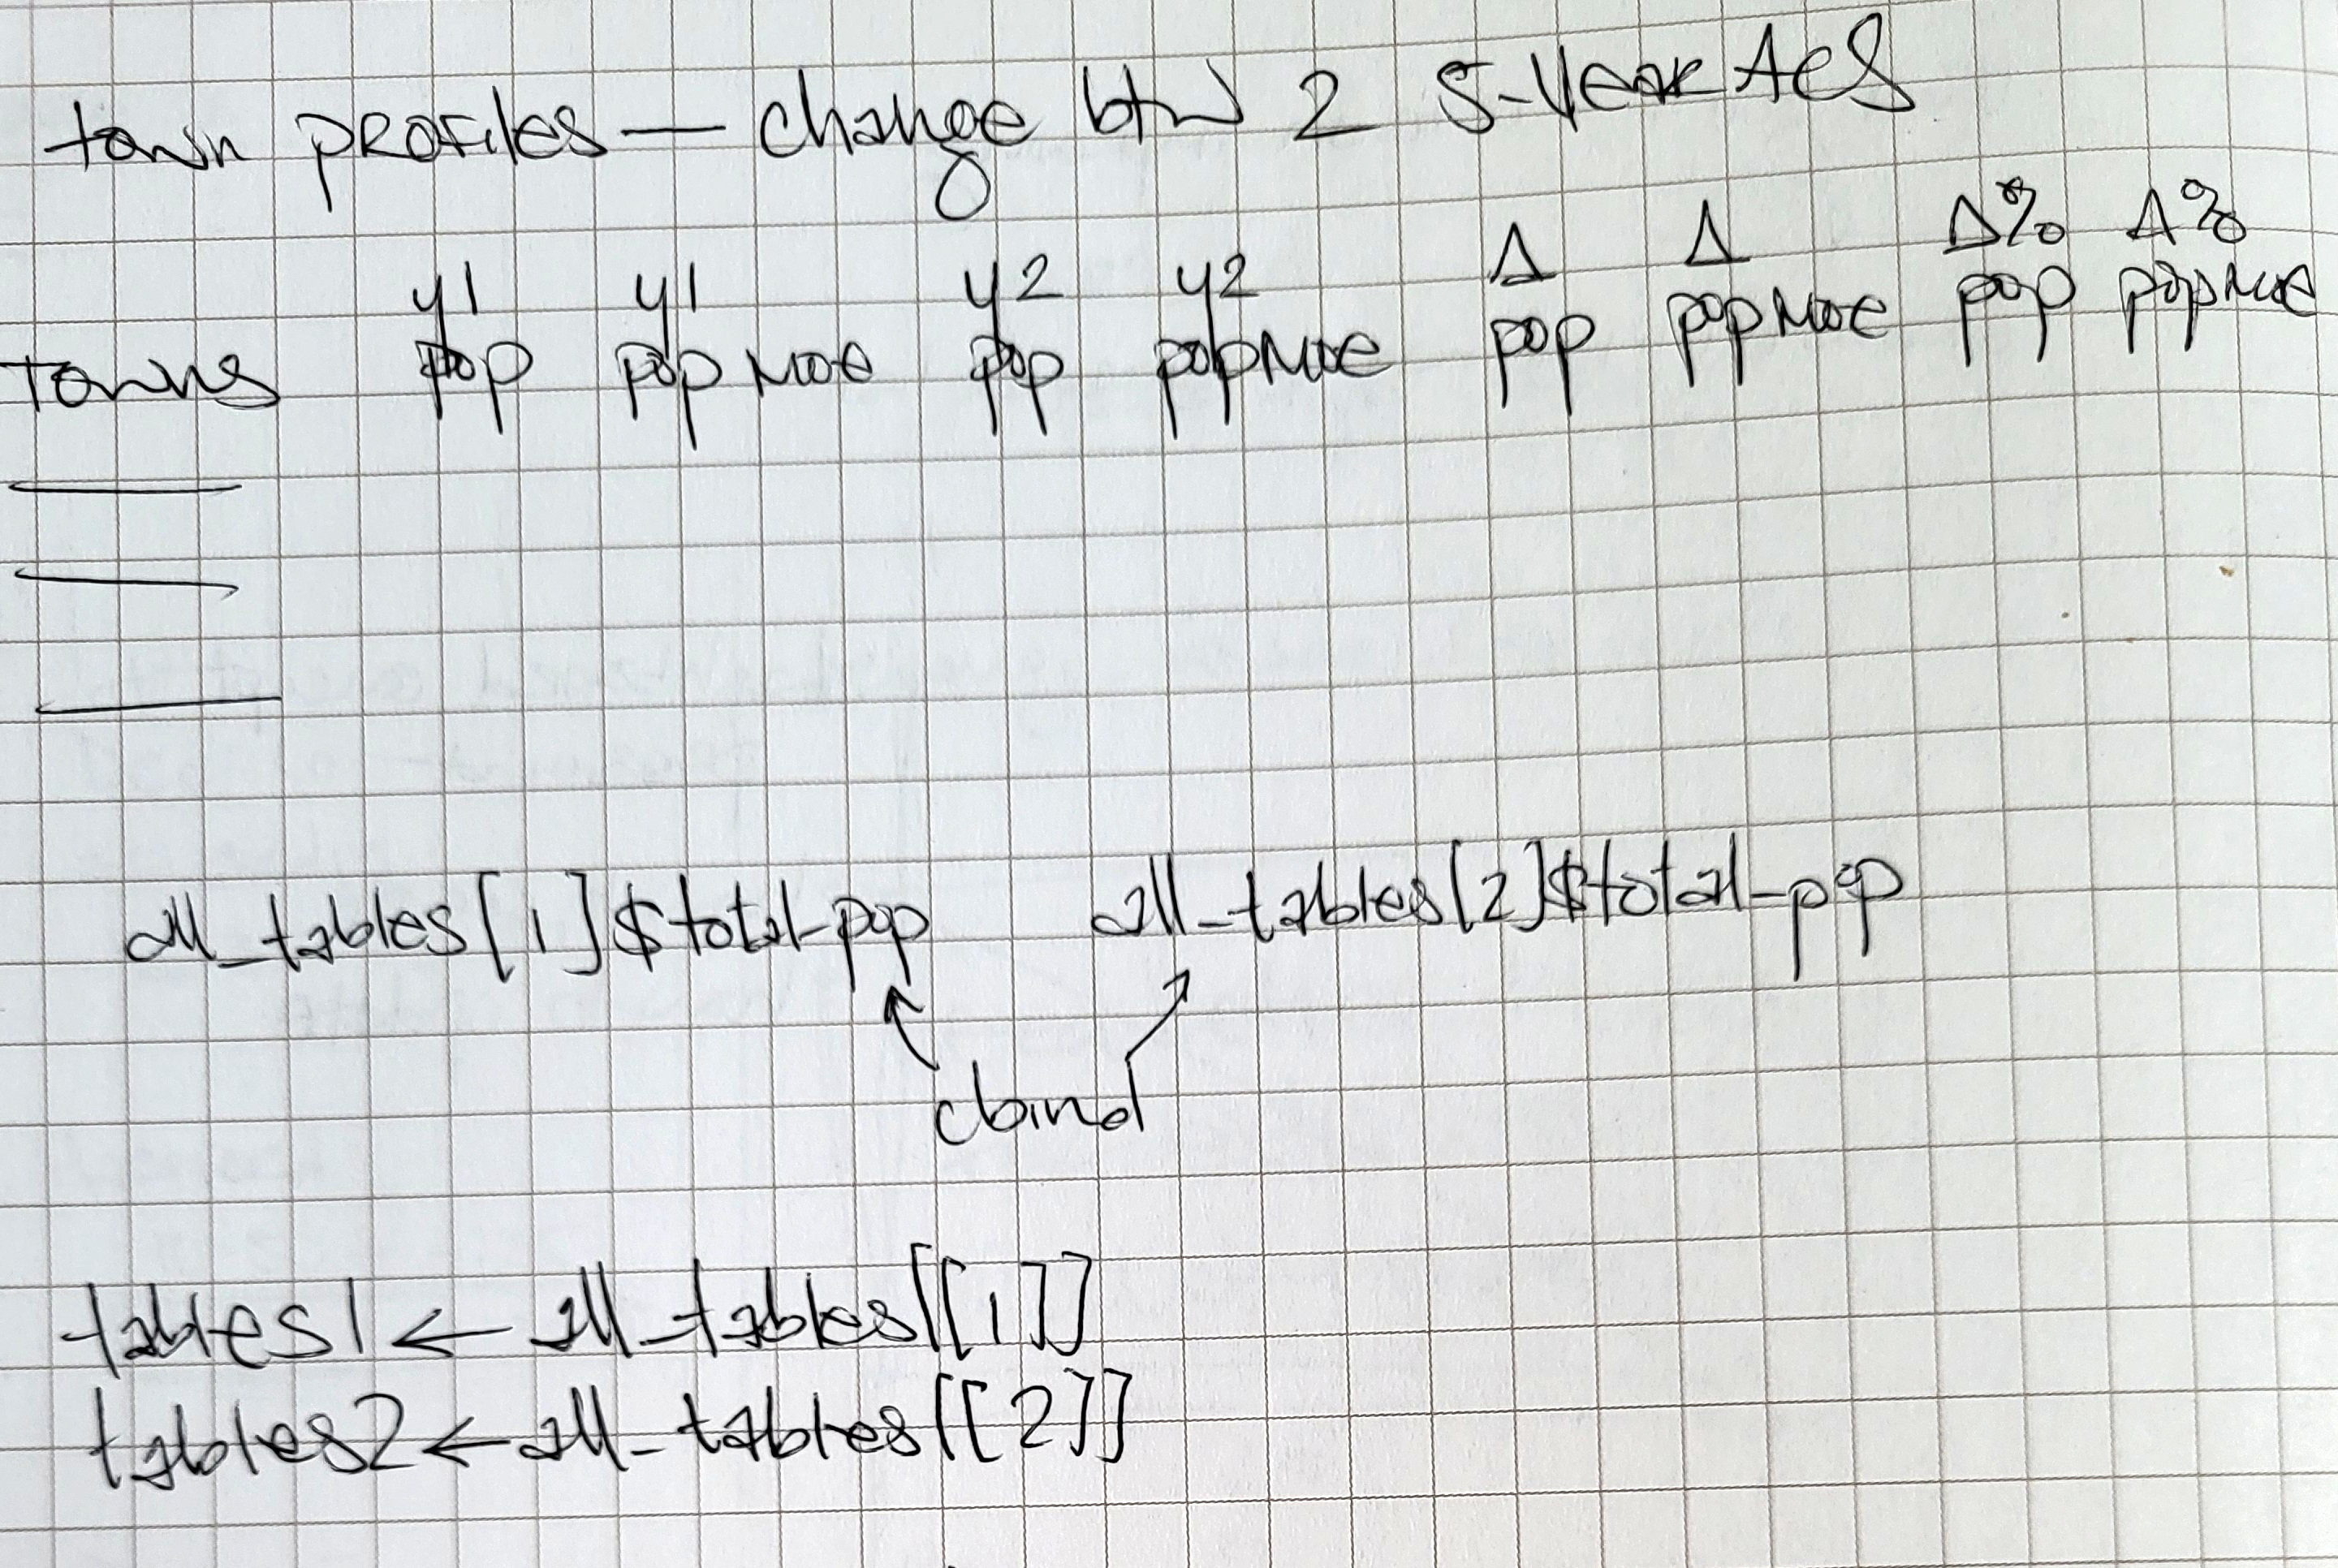 town profiles — change btw 2 5-Year ACS
y1 y1 y2 y2 Δ Δ Δ% Δ%
Towns pop pop moe pop pop moe pop pop moe pop pop moe
all_tables[1]$total_pop all_tables[2]$total_pop
cbind
tables1 ← all_tables[[1]]
tables2 ← all_tables[[2]]